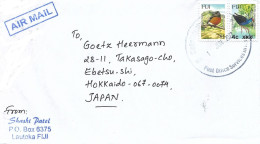 AIR MAIL
FIJI
FIJI
To,
Goetz Herrmann
28-11, Takasago-cho,
Ebetsu-shi,
Hokkaido-067-0074,
JAPAN.
From:
Shashi Patel
P.O. Box 6375
Lautoka FIJI